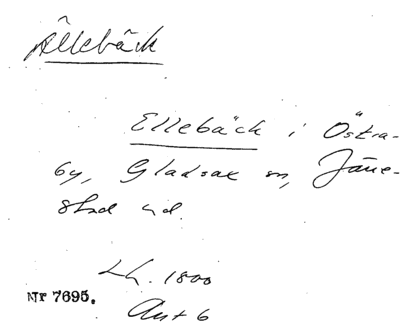 Ällebäck
Ellebäck i Östra-
by, Gladsax sn, Järre-
stad hd.
Lh. 1800
Nr 7695.
Avt 6